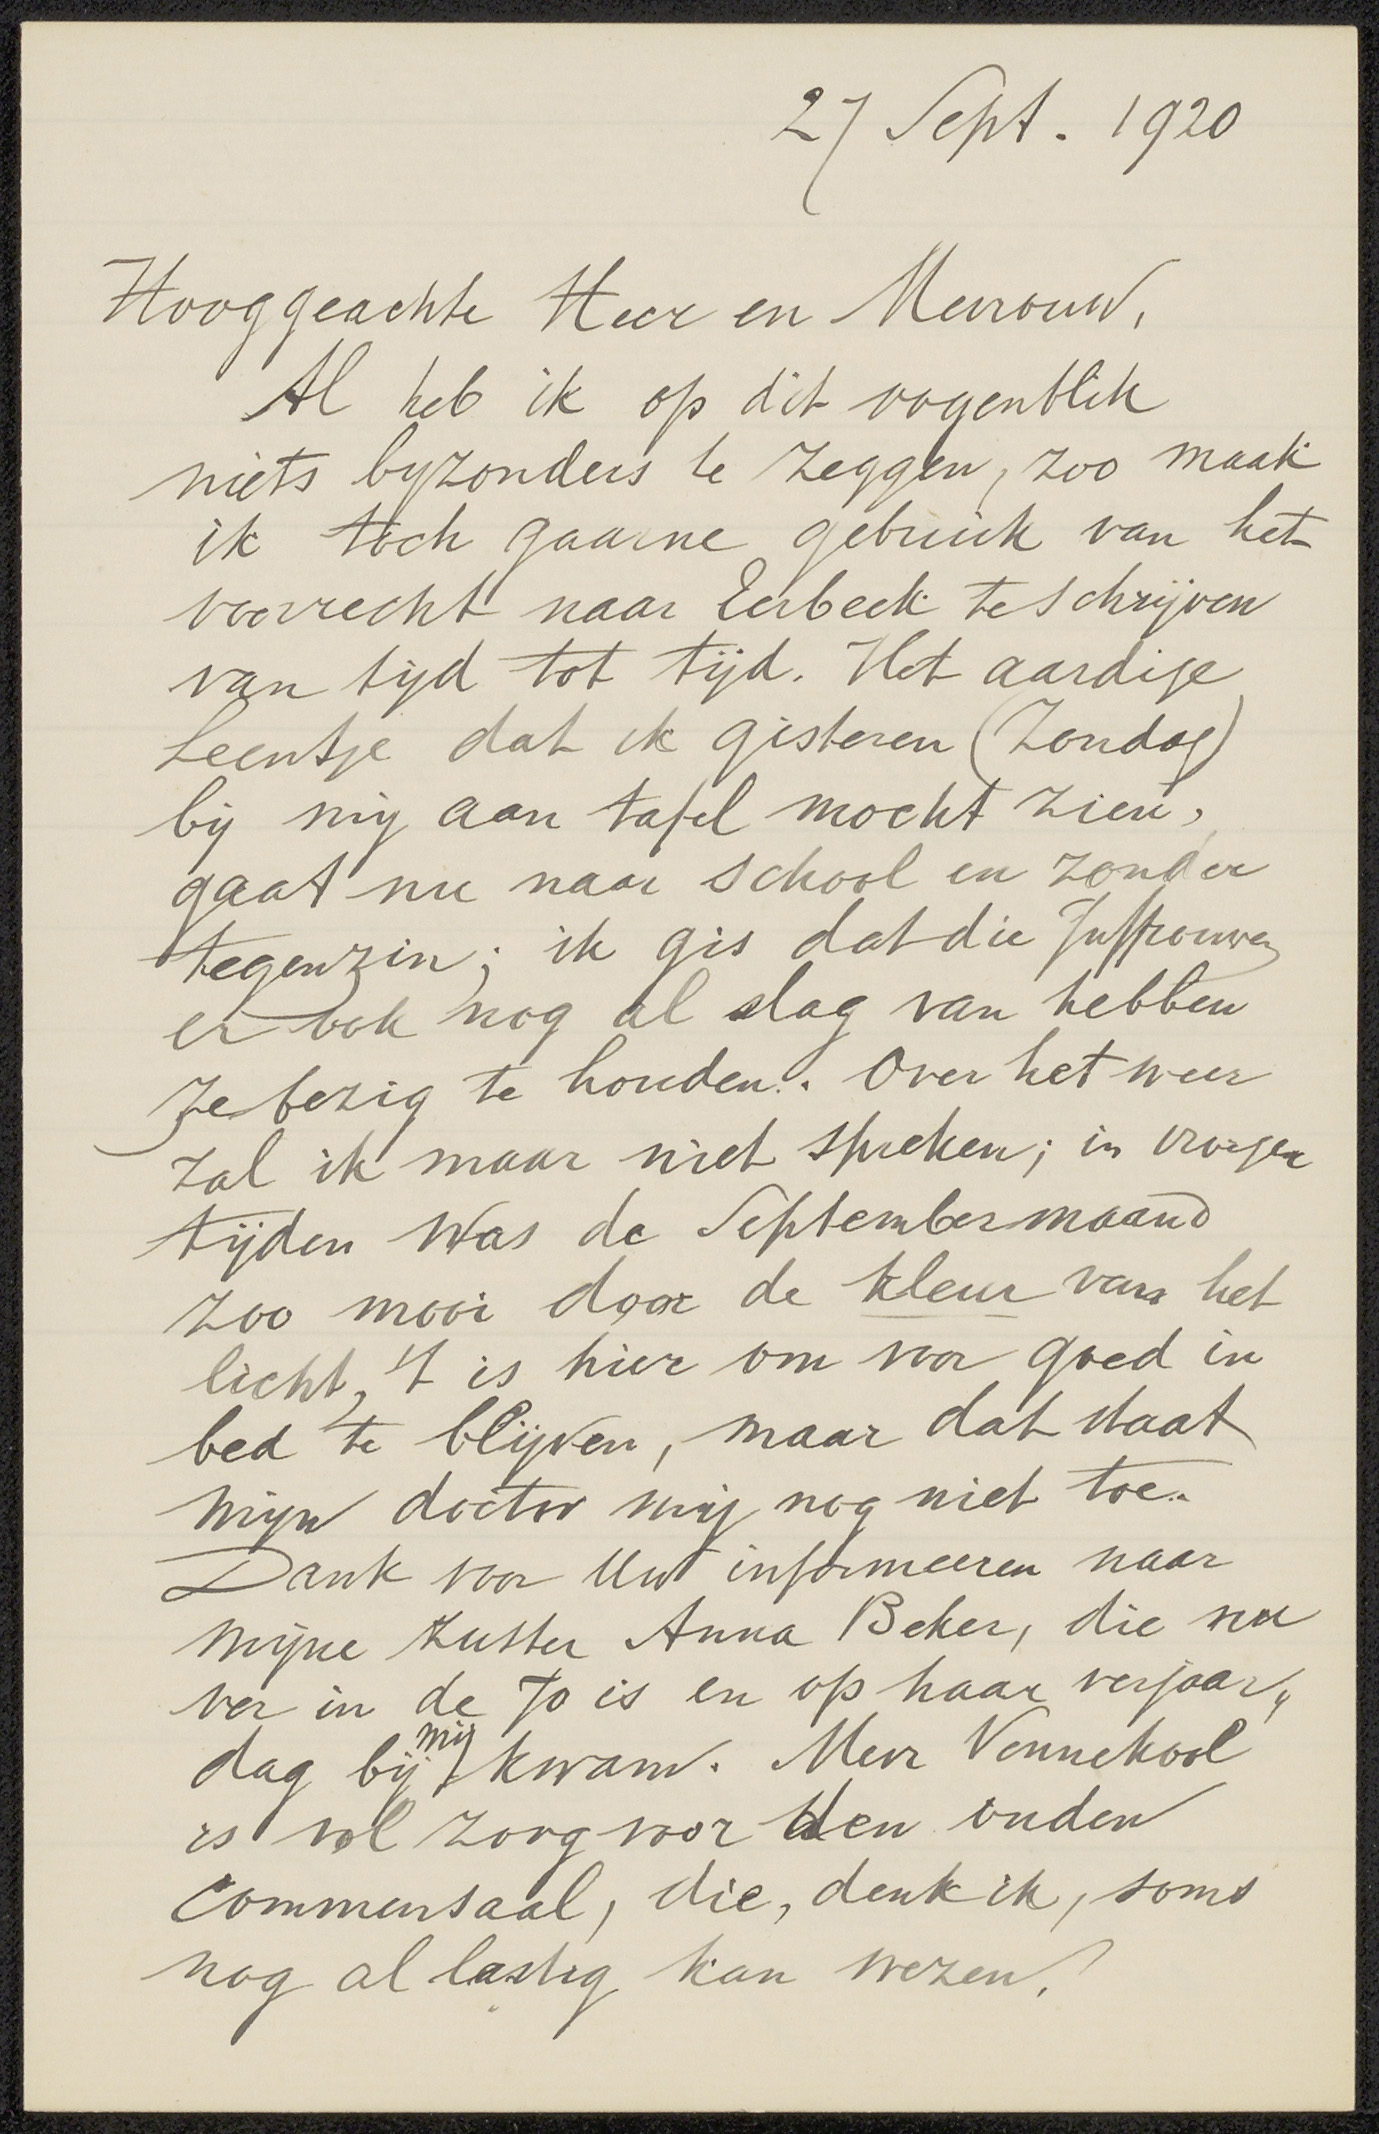 27 Sept. 1920
Hooggeachte Heer en Mevrouw,
Al heb ik op dit oogenblik
niets byzonders te zeggen, zoo maak
ik toch gaarne gebruik van het
voorrecht naar Eerbeek te schrijven
van tijd tot tijd. Het aardige
Leentje dat ik gisteren (Zondag)
bij mij aan tafel mocht zien,
gaat nu naar school en zonder
tegenzin; ik gis dat die Juffrouwen
er ook nog al slag van hebben
ze bezig te houden. Over het weer
zal ik maar niet spreken; in vroeger
tijden was de Septembermaand
zoo mooi door de kleur van het
licht, 't is hier om voor goed in
bed te blijven, maar dat staat
mijn doctor mij nog niet toe.
Dank voor Uw informeeren naar
mijne zuster Anna Beker, die nu
ver in de 70 is en op haar verjaar„
dag bij mij kwam. Mevr Vennekool
is vol zorg voor den ouden
commensaal, die, denk ik, soms
nog al lastig kan wezen!